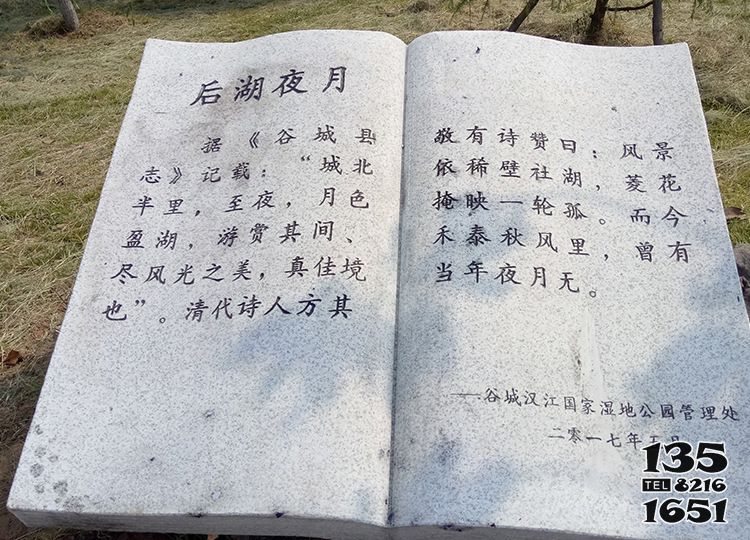 后湖夜月
据《谷城县
志》记载：“城北
半里，至夜，月色
盈湖，游赏其间、
尽风光之美，真佳境
也”。清代诗人方其
敬有诗赞曰：风景
依稀壁社湖，菱花
掩映一轮孤。而今
禾泰秋风里，曾有
当年夜月无。
——谷城汉江国家湿地公园管理处
二零一七年五月
135
TEL 8216
1651